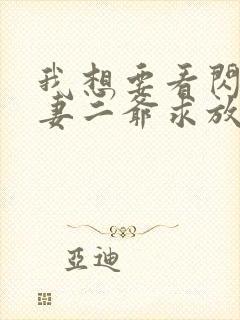 我想要看閃
妻二爺求放
亞迪